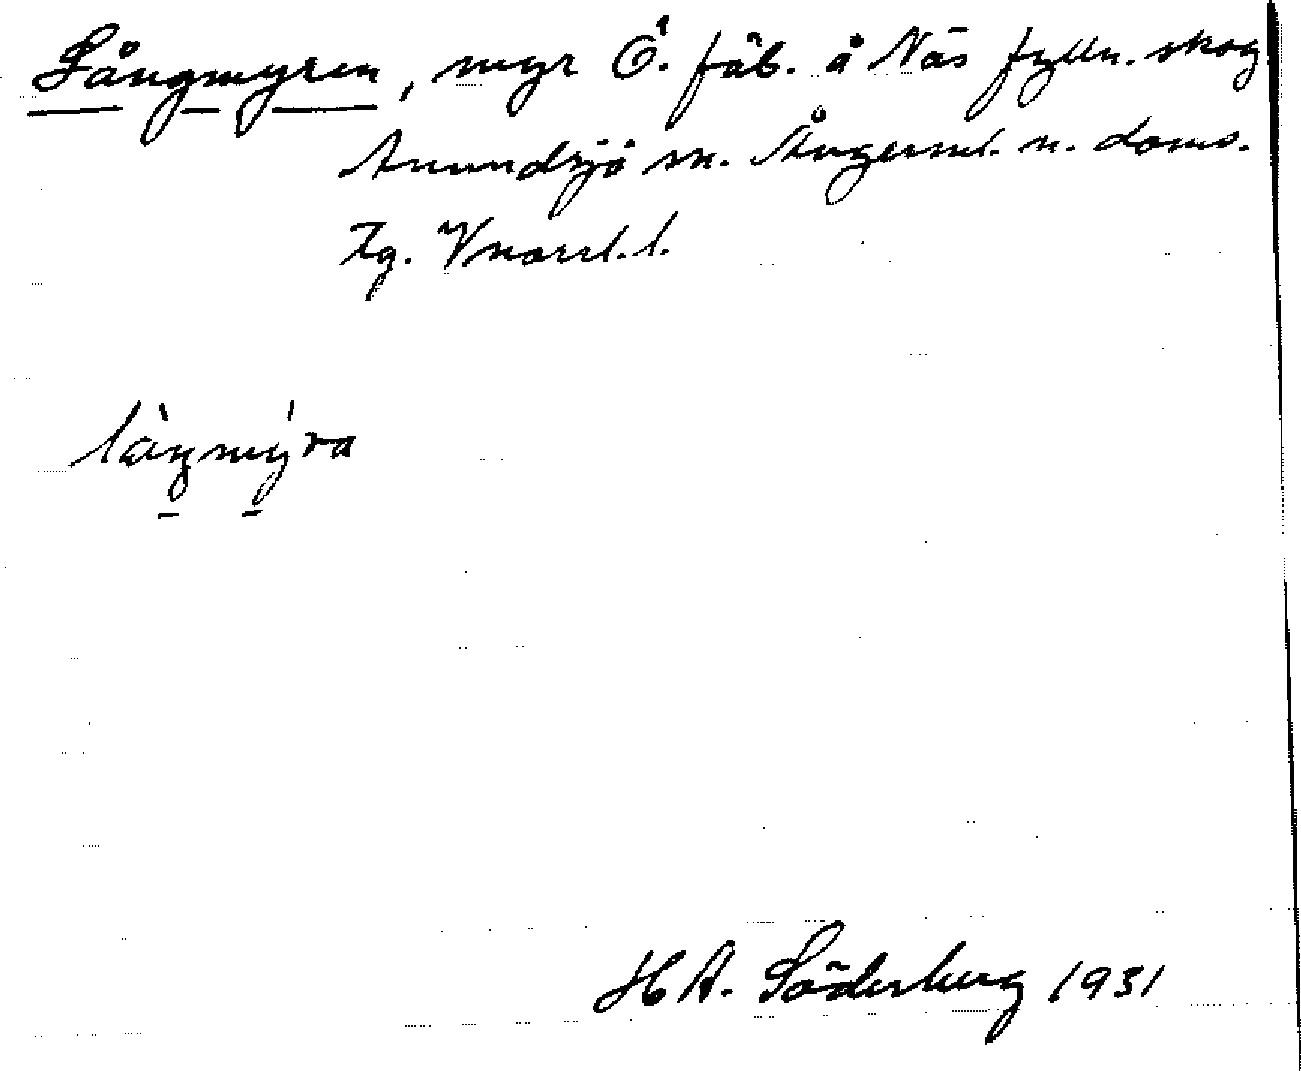 Långmyren, myr Ö. fäb. å Näs fylln. skog
Anundsjö sn. Ångerml. n. doms.
Tg. Vnorrl. l.
làŋmy̍ra
H A. Söderberg 1931